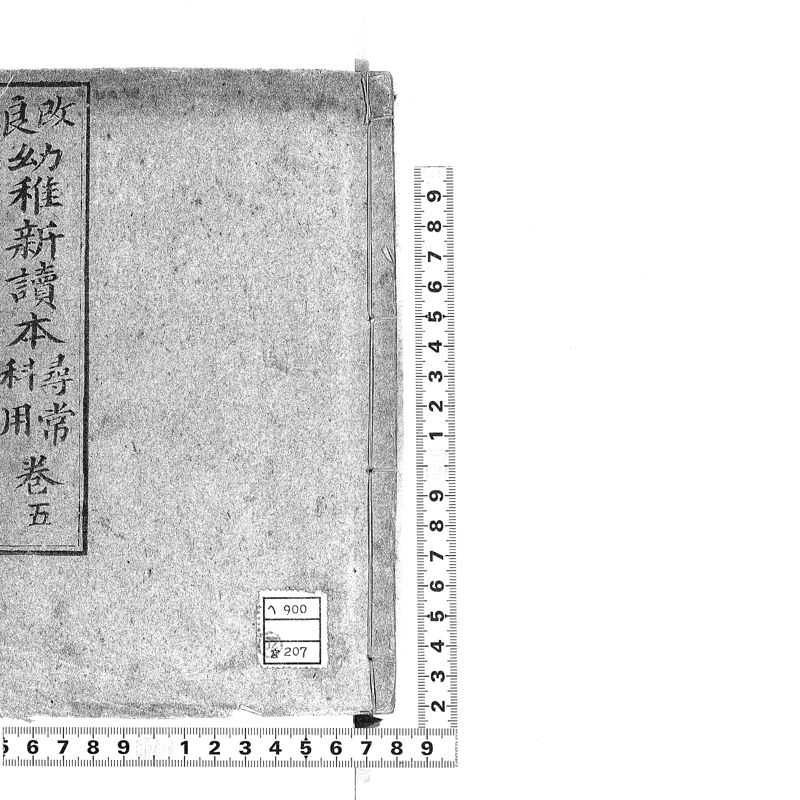 改良
幼稚新讀本
尋常科用
巻五
へ 900
☆ 207
9 8 7 6 5 4 3 2 1 9 8 7 6 5 4 3 2
5 6 7 8 9 1 2 3 4 5 6 7 8 9